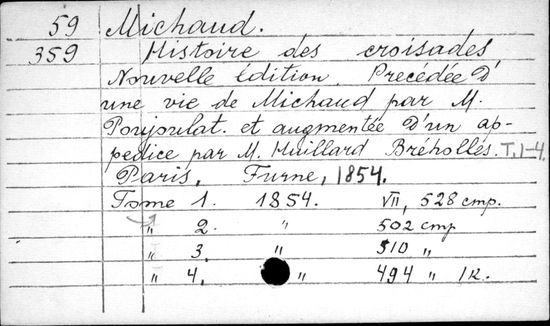 59 Michaud.
359 Histoire des croisades
Nouvelle édition. Precédée d'
une vie de Michaud par M.
Poujoulat. et augmentée d'un ap-
pedice par M. Huillard Bréholles. T. 1-4.
Paris, Furne, 1854.
Tome 1. 1854. VII, 528 стр.
" 2. " 502 стр
" 3, " 510 "
" 4, " 494 " 1к.